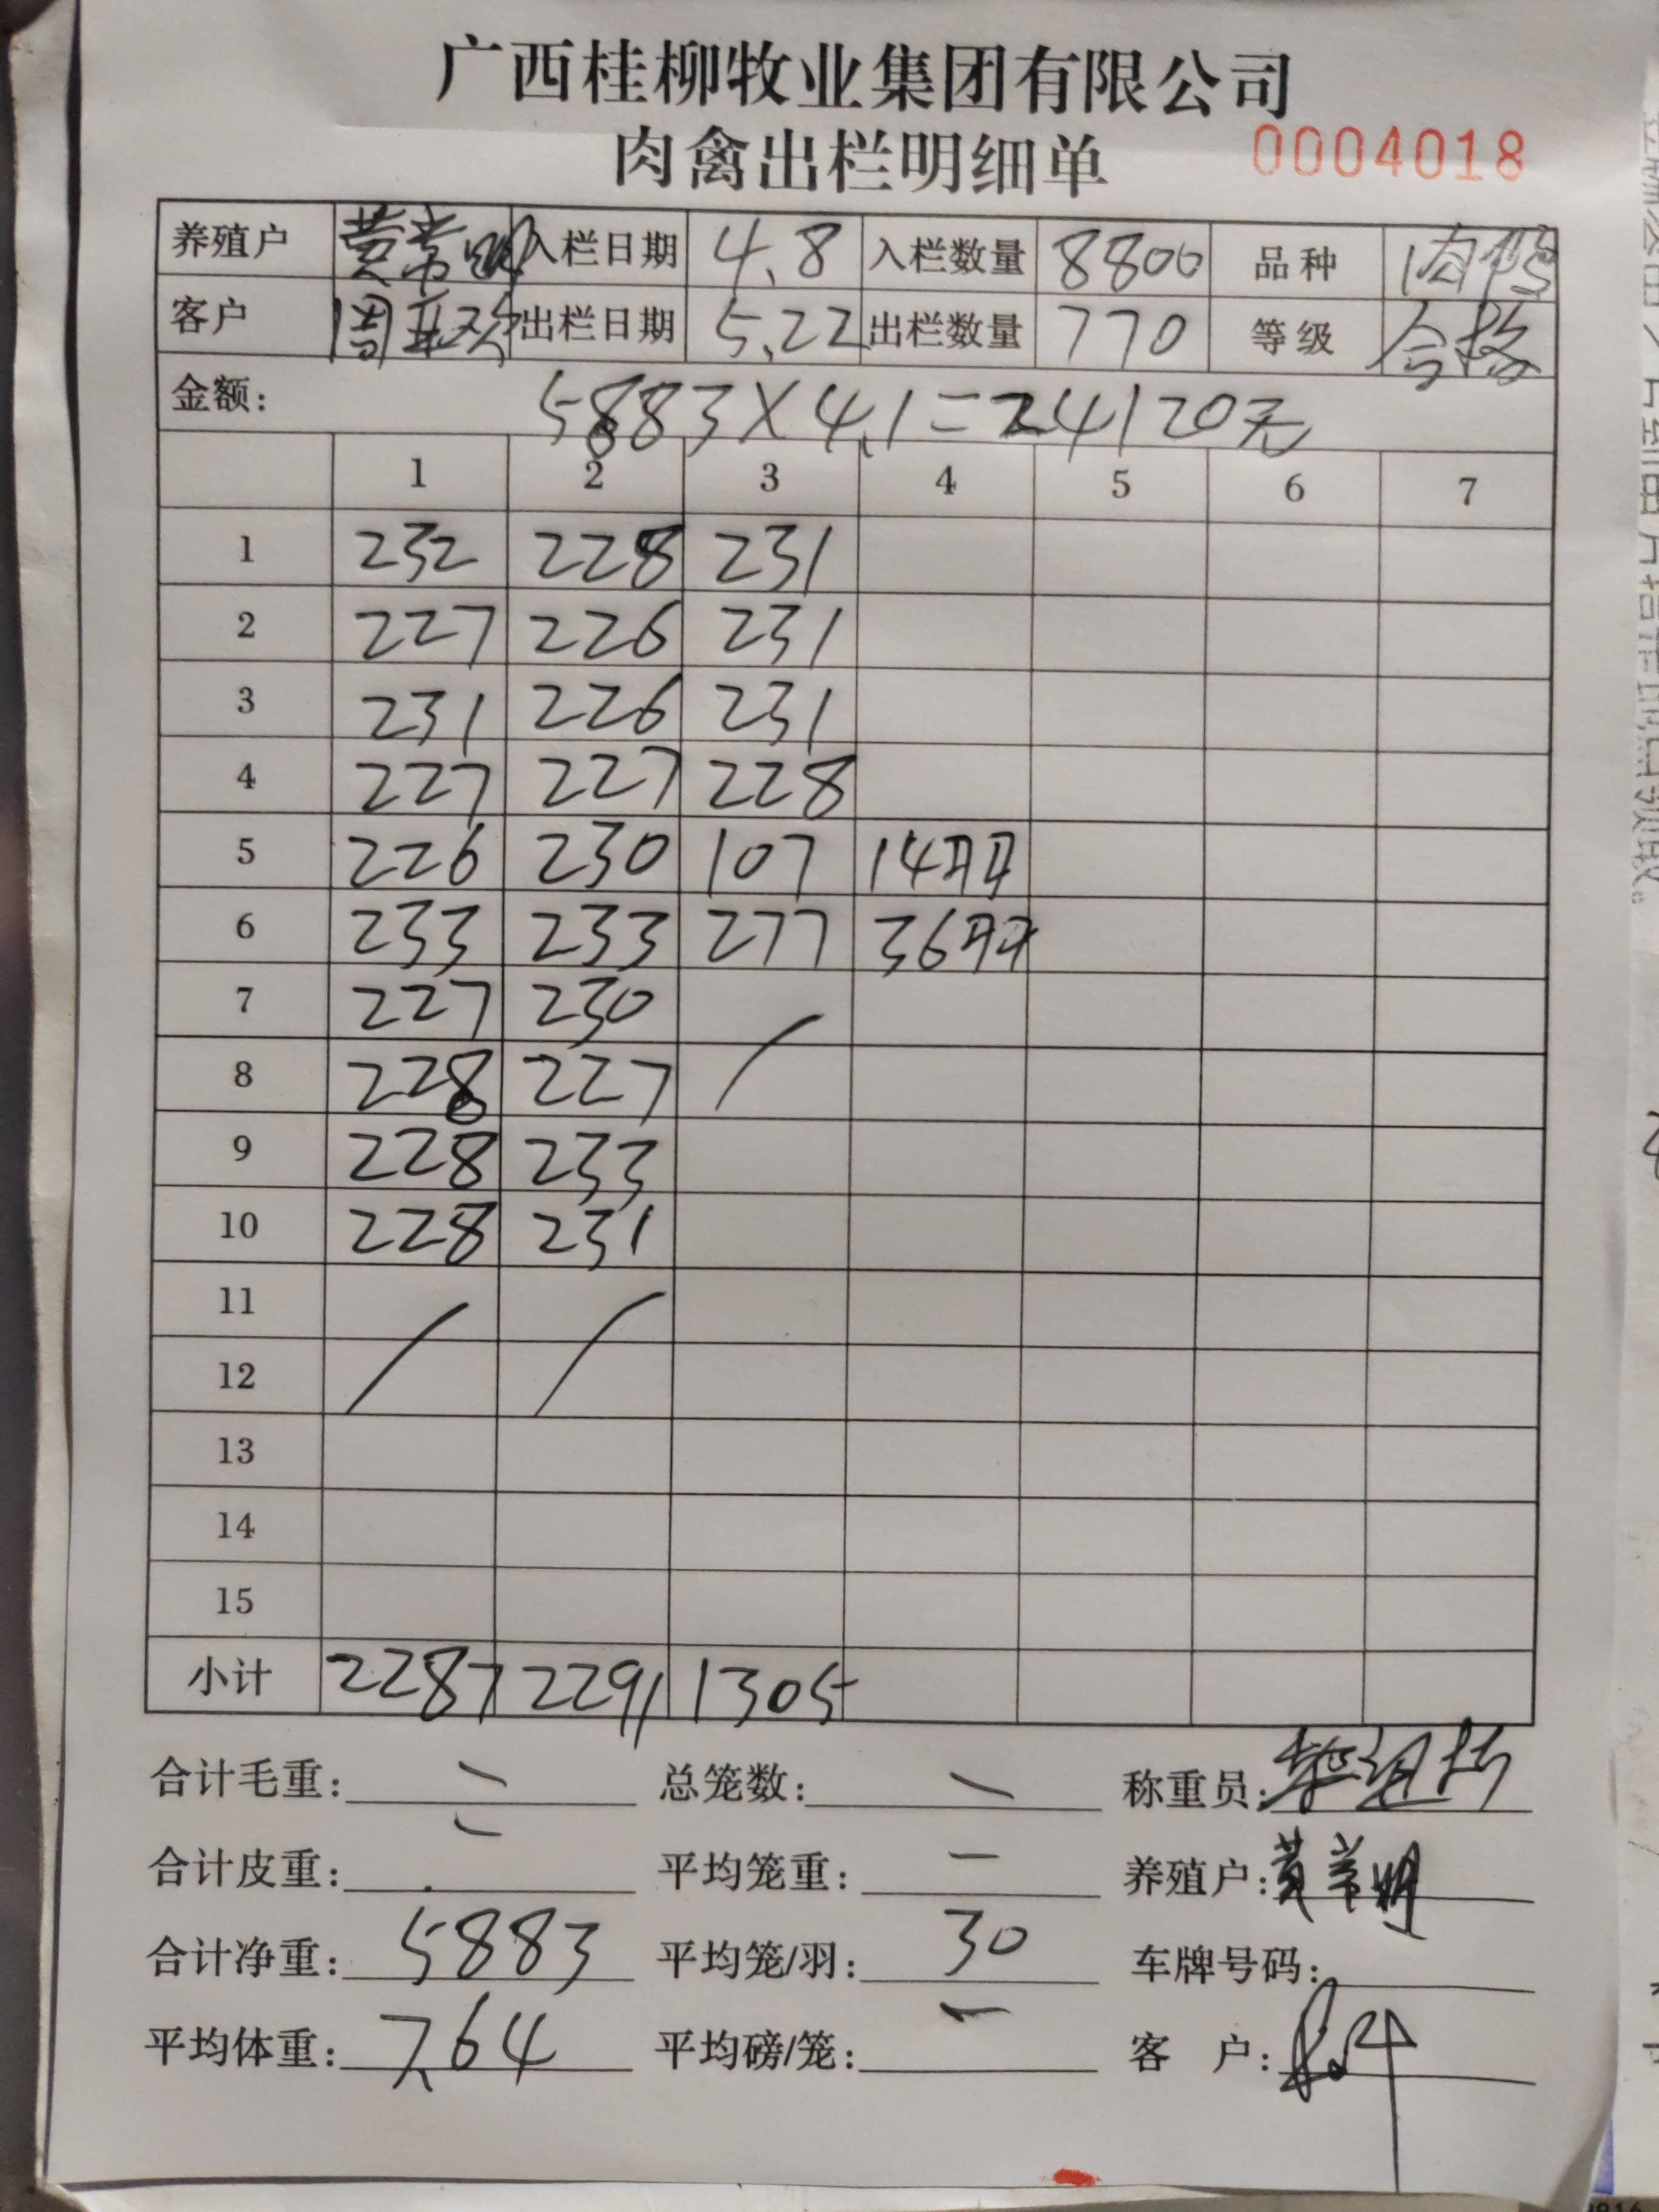 广西桂柳牧业集团有限公司
肉禽出栏明细单 0004018
养殖户 入栏日期 4.8 入栏数量 8800 品种 肉鸭
客户 出栏日期 5.22 出栏数量 770 等级 合格
金额: 5883×4.1=24120元
1 2 3 4 5 6 7
1 232 228 231
2 227 226 231
3 231 226 231
4 227 227 228
5 226 230 107 14只
6 233 233 277 36只
7 227 230
8 228 227
9 228 233
10 228 231
11
12
13
14
15
小计 2287 2291 1305
合计毛重: 总笼数: 称重员:
合计皮重: 平均笼重: 养殖户:
合计净重: 5883 平均笼/羽: 30 车牌号码:
平均体重: 7.64 平均磅/笼: 客 户: